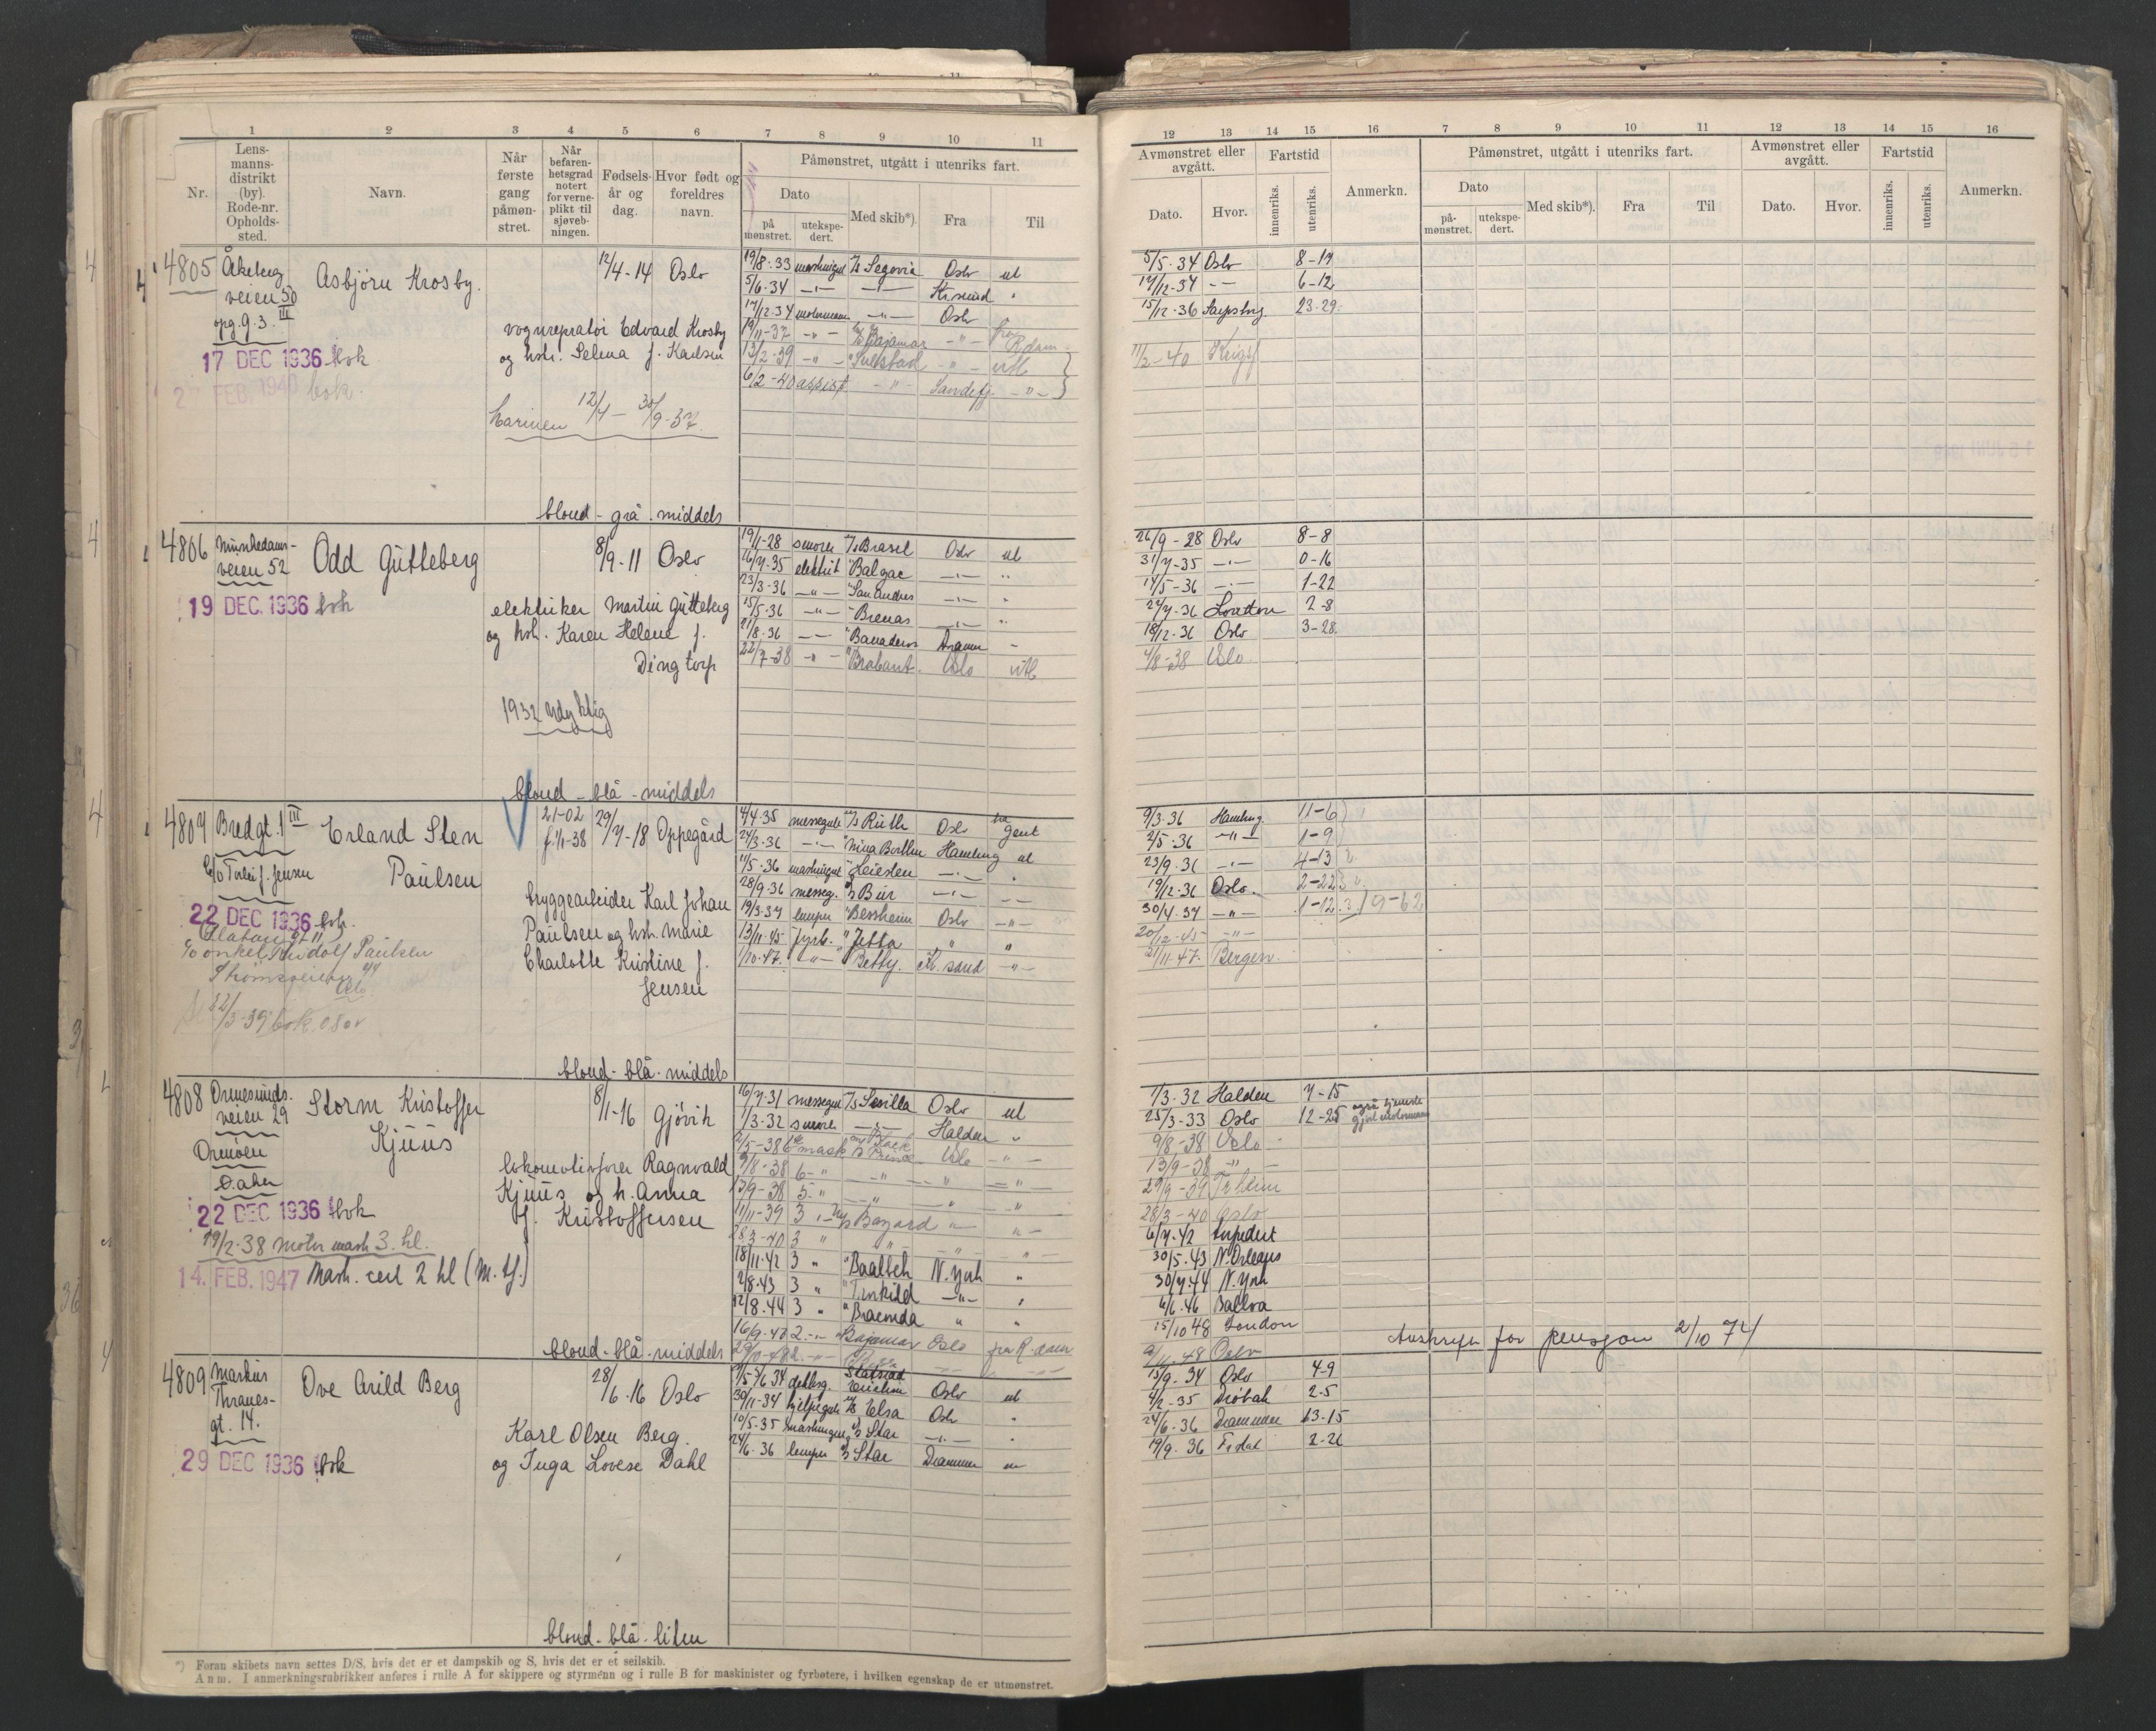 1 2 3 4 5 6 7 8 9 10 11
Nr.
Lens-
manns-
distrikt
(by).
Rode-nr.
Opholds-
sted.
Navn.
Når
første
gang
påmøn-
stret.
Når
befaren-
hetsgrad
notert
for verne-
plikt til
sjøveb-
ningen.
Fødsels-
år og
dag.
Hvor født og
foreldres
navn.
Påmønstret, utgått i utenriks fart.
Dato
på
mønstret.
utekspe-
dert.
Med skib*).
Fra
Til
4805 Åkeberg
veien 50
opg. 9. 3. III
Asbjørn Krosby.
12/4-14 Oslo
vognreparatør Edvard Krosby
og hstr. Selma f. Karlsen
17 DEC 1936 bok
27 FEB. 1940 bok.
Marinen 12/4 - 30/9-37.
blond - grå - middels
19/8.33 maskingut Segovia Oslo ut
5/6.34 -"- -"- Kr.sund "
17/12.34 motormann -"- Oslo "
19/11-37 -"- Bajamar -"- fra R.dam
13/2-39 -"- -"-
6/2-40 assist -"- Sandefj. -"-
4806 Munkedams-
veien 52
Odd Gütteberg
8/9-11 Oslo
19 DEC. 1936 bok
elektriker Martin Gütteberg
og hstr. Karen Helene f.
Dingtorp
1932 Udyktig
blond - blå - middels
19/1-28 smører M/S Brasil Oslo ut
26/7.35 elektrik " Balzac -"- "
23/3-36 -"- " San Andres -"- "
15/5.36 -"- " Brenas -"- "
21/8.36 -"- " Banaderos Dramm -
22/7-38 -"- " Brabant. Oslo utl
4807 Bredgt. 1 III
Erland Sten
Paulsen
21-02
29/7-18 Oppegård
22 DEC 1936 bok.
c/o onkel Rudolf Paulsen
22/3-39 bok.
bryggearbeider Karl Johan
Paulsen og hstr. Marie
Charlotte Kristine f.
Jensen
blond - blå - middels
4/4.35 messegutt Ruth Oslo fra Gent
24/3.36 -"- Hamburg ut
11/5.36 maskingut -"- "
28/9.36 messeg. D/S Bur -"- --
19/3-37 lemper " Bessheim Oslo -"-
13/11-45 fyrb. " Jetta " "
1/10.47. -"- " Betty. Kr.sand -"-
4808 Ormesunds-
veien 29
Ormøen
Storm Kristoffer
Kjuus
8/1-16 Gjøvik
22 DEC 1936 bok
19/2-38 motor mask 3. kl.
14. FEB. 1947 Mask. cert 2 kl (M. tf.)
lokomotivfører Ragnvald
Kjuus og h. Anna
f. Kristoffersen
blond - blå - middels
16/7.31 messegut M/S Sevilla Oslo ut
1/3-32 smører -"- Halden "
2/5-38 6te mask Black Prince Oslo -"-
9/8-38 6- " -"- -"- -"-
13/9-38 5. " -"- " -"-
11/11-39 3 -"- Bayard "
28/3-40 3 " " " "
18/11.42 3 " " Baalbek N. York "
2/8.43 3 " " Torskild -"- "
12/8.44 3 " " Braemda " "
16/9.47 2. -"- Bajamar Oslo fra R.dam
4809 Markus
Thranes-
gt. 14.
Ove Arild Berg
28/6-16 Oslo
29 DEC 1936 bok
Karl Olsen Berg.
og Inga Lovise Dahl
blond - blå - liten
Oslo ut
30/11-34 hjelpegutt Elsa Oslo "
10/5.35 maskingut Star -"- "
24/6.36 lemper Star Drammen
*) Foran skibets navn settes D/S, hvis det er et dampskib og S, hvis det er et seilskib.
Anm. I anmerkningsrubrikken anføres i rulle A for skippere og styrmenn og i rulle B for maskinister og fyrbøtere, i hvilken egenskap de er utmønstret.
12 13 14 15 16 7 8 9 10 11 12 13 14 15 16
Avmønstret eller
avgått.
Dato. Hvor.
Fartstid
innenriks. utenriks.
Anmerkn.
Påmønstret, utgått i utenriks fart.
Dato
på-
mønstret.
utekspe-
dert.
Med skib*). Fra Til
Avmønstret eller
avgått.
Dato. Hvor.
Fartstid
innenriks. utenriks.
Anmerkn.
5/5.34 Oslo 8-17
17/12-34 -- 6-12
15/12.36 Sarpsborg 23-29.
11/2-40 Krigsf
26/9-28 Oslo 8-8
31/7-35 -"- 0-16
14/5-36 -"- 1-22
24/7-36 2-8
18/12-36 Oslo 3-28
4/8-38 Oslo
9/3.36 Hamburg. 11-6
2/5.36 -"- 1-9
23/9.36 -"- 4-13
19/12.36 Oslo. 2-22
30/4.37 -"- 1-12
20/12-45 -"-
21/11.47. Bergen.
1/3-32 Halden 7-15
25/3-33 Oslo 12-25 også tjeneste
gjort motormann
9/8-38 Oslo
13/9-38 -"-
29/9-39 Tr.heim
28/3-40 Oslo
6/7.42 torpedert
30/5.43 N. Orleans
30/7.44 N. York
6/6.46 Balboa
15/10 48 London
Oslo
Avskrift for pensjon 2/10 74
15/9.34 Oslo 4-9
4/2-35 Drøbak 2-5
24/6.36 Drammen 13-15
19/9.36 2-26